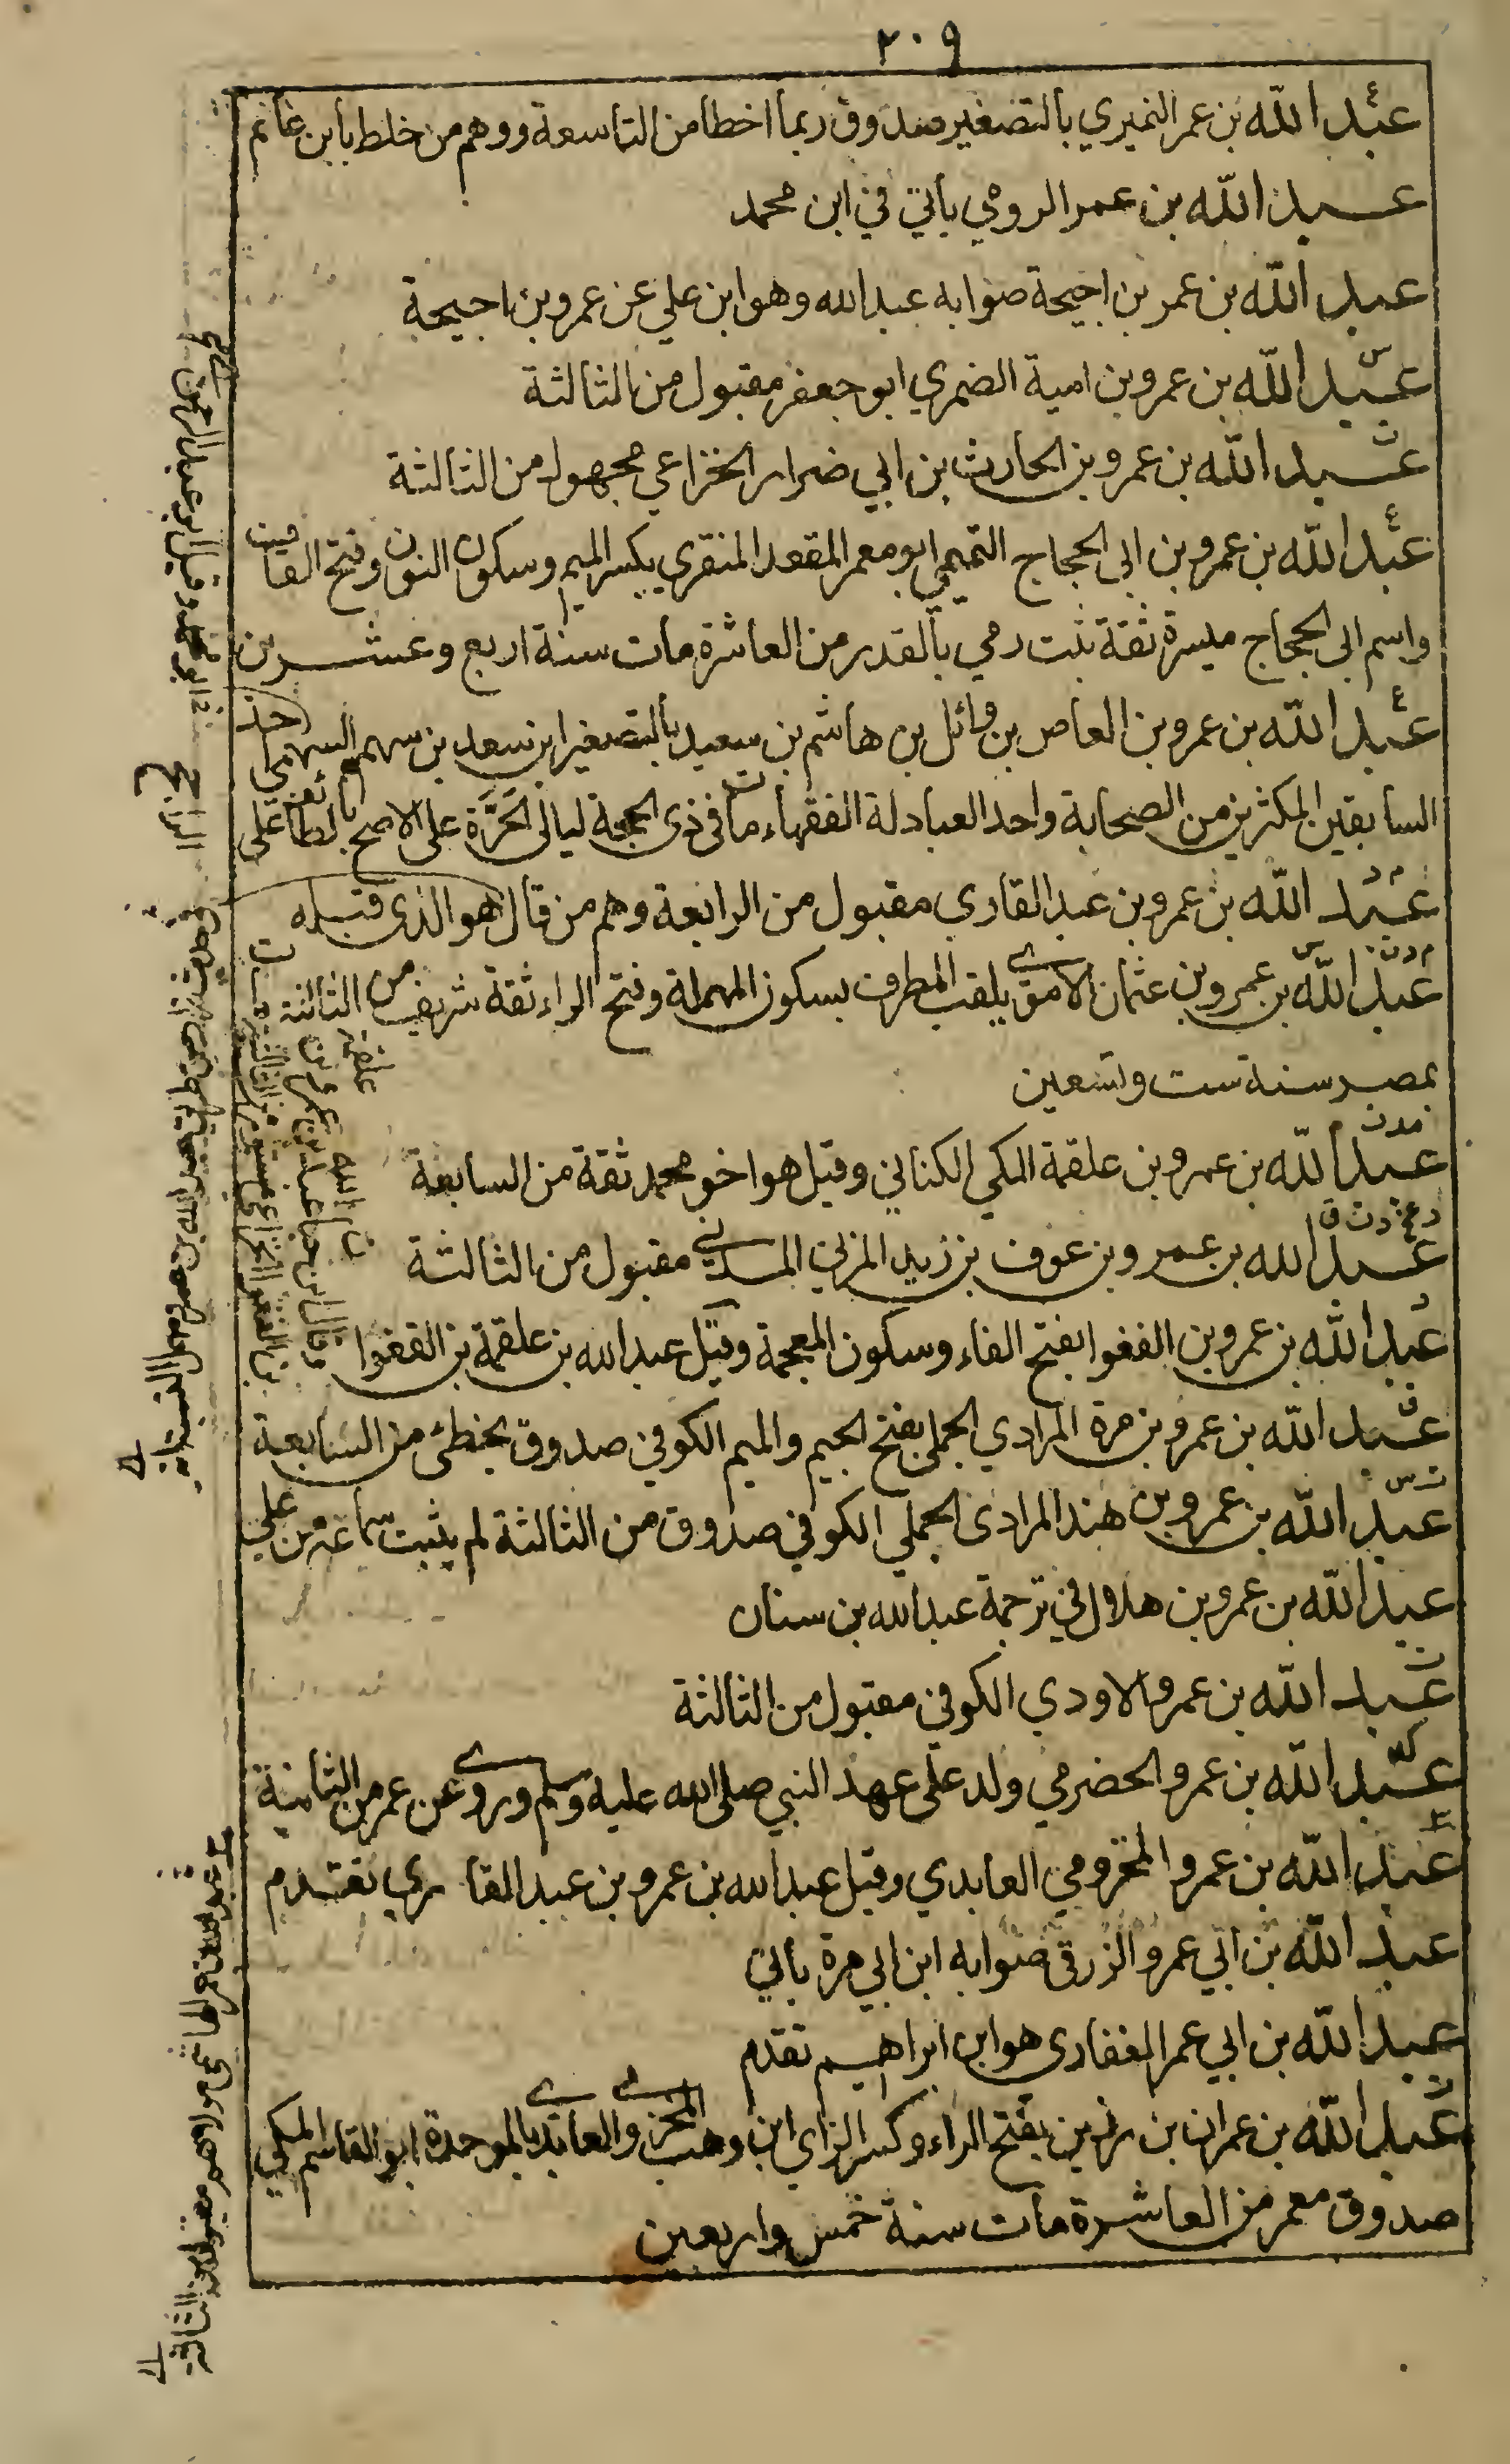 ٢٠٩
عبد الله بن عمر النميري بالتصغير صدوق ربما اخطا من التاسعة ووهم من خلط بابن غانم
عبد الله بن عمر الرومي ياتي في ابن محمد
عبد الله بن عمر بن احيحة صوابه عبد الله وهو ابن علي عن عمرو بن احيحة
عبد الله بن عمرو بن امية الضمري ابو جعفر مقبول من الثالثة
عبد الله بن عمرو بن الحارث بن ابي ضرار الخزاعي مجهول من الثالثة
عبد الله بن عمرو بن ابي الحجاج التميمي ابو معمر المقعد المنقري بكسر الميم وسكون النون وفتح القاف
واسم ابي الحجاج ميسرة ثقة ثبت رمي بالقدر من العاشرة مات سنة اربع وعشرين
عبد الله بن عمرو بن العاص بن وائل بن هاشم بن سعيد بالتصغير ابن سعد بن سهم السهمي احد
السابقين المكثرين من الصحابة واحد العبادلة الفقهاء مات في ذي الحجة ليالي الحَرَّة على الاصح بالطائف على
عبد الله بن عمرو بن عبد القاري مقبول من الرابعة وهم من قال هو الذي قبله
عبد الله بن عمرو بن عثمان الاموي يلقب المطرف بسكون المهملة وفتح الراء ثقة شريف من الثالثة مات
بمصر سنة ست وتسعين
عبد الله بن عمرو بن علقمة المكي الكناني وقيل هو اخو محمد ثقة من السابعة
عبد الله بن عمرو بن عوف بن زيد المزني المدني مقبول من الثالثة
عبد الله بن عمرو بن الفغوا بفتح الفاء وسكون المعجمة وقيل عبد الله بن علقمة بن الفغوا
عبد الله بن عمرو بن مرة المرادي الجملي بفتح الجيم والميم الكوفي صدوق يخطئ من السابعة
عبد الله بن عمرو بن هند المرادي الجملي الكوفي صدوق من الثالثة لم يثبت سماعه من علي
عبد الله بن عمرو بن هلال في ترجمة عبد الله بن سنان
عبد الله بن عمرو الاودي الكوفي مقبول من الثالثة
عبد الله بن عمرو الحضرمي ولد على عهد النبي صلى الله عليه وسلم وروى عن عمر من الثانية
عبد الله بن عمرو المخزومي العابدي وقيل عبد الله بن عمرو بن عبد القاري تقدم
عبد الله بن ابي عمرو الزرقي صوابه ابن ابي مرة ياتي
عبد الله بن ابي عمر الغفاري هو ابن ابراهيم تقدم
عبد الله بن عمران بن رزين بفتح الراء وكسر الزاي ابن وهب المخزومي العابدي بالموحدة ابو القاسم المكي
صدوق معمر من العاشرة مات سنة خمس واربعين